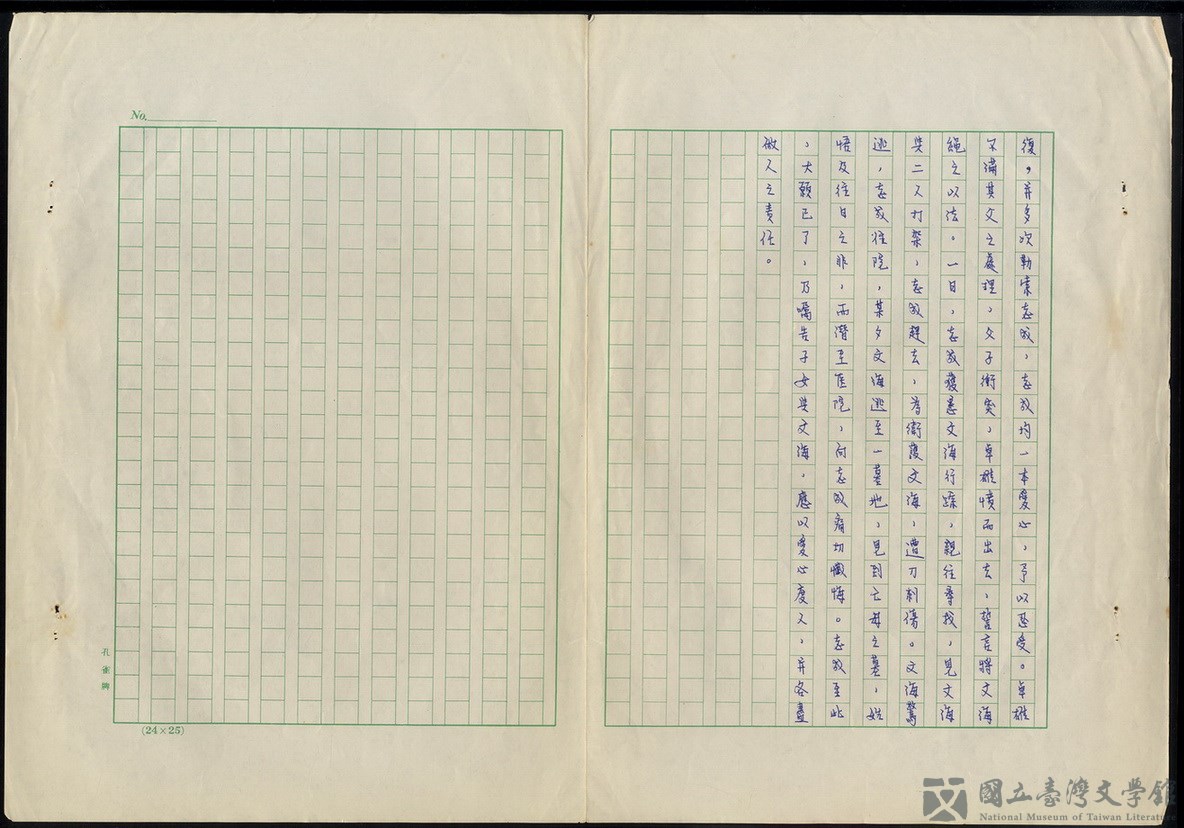 復，并多次勒索志敬，志敬均一本愛心，予以忍受。卓雄
不滿其父之處理，父子衝突，卓雄憤而出去，誓言將文海
繩之以法。一日，志敬獲悉文海行蹤，親往尋找，見文海
與二人打架，志敬趕去，為衛護文海，遭刀刺傷。文海驚
逃，志敬住院，某夕文海逃至一墓地，見到亡母之墓，始
悟及往日之非，而潛至醫院，向志敬痛切懺悔。志敬至此
，大願已了，乃囑告子女與文海，應以愛心度人，并各盡
做人之責任。
No.
孔雀牌
(24×25)
國立臺灣文學館
National Museum of Taiwan Literature